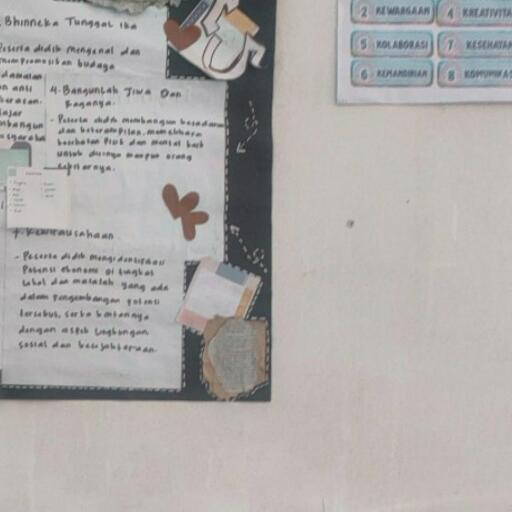 Bhinneka Tunggal Ika
Peserta didik mengenal dan
mempromosikan budaya
4. Bangunlah Jiwa Dan
Raganya.
- Peserta didik membangun kesadaran
dan keterampilan, memelihara
kesehatan fisik dan mental baik
untuk dirinya maupun orang
sekitarnya.
7. Kewirausahaan
- Peserta didik mengidentifikasi
Potensi ekonomi di tingkat
lokal dan masalah yang ada
dalam pengembangan potensi
tersebut, serta kaitannya
dengan aspek lingkungan,
sosial dan kesejahteraan.
2 KEWARGAAN
4 KREATIVITA
5 KOLABORASI
7 KESEHATAN
6 KEMANDIRIAN
8 KOMUNIKAS